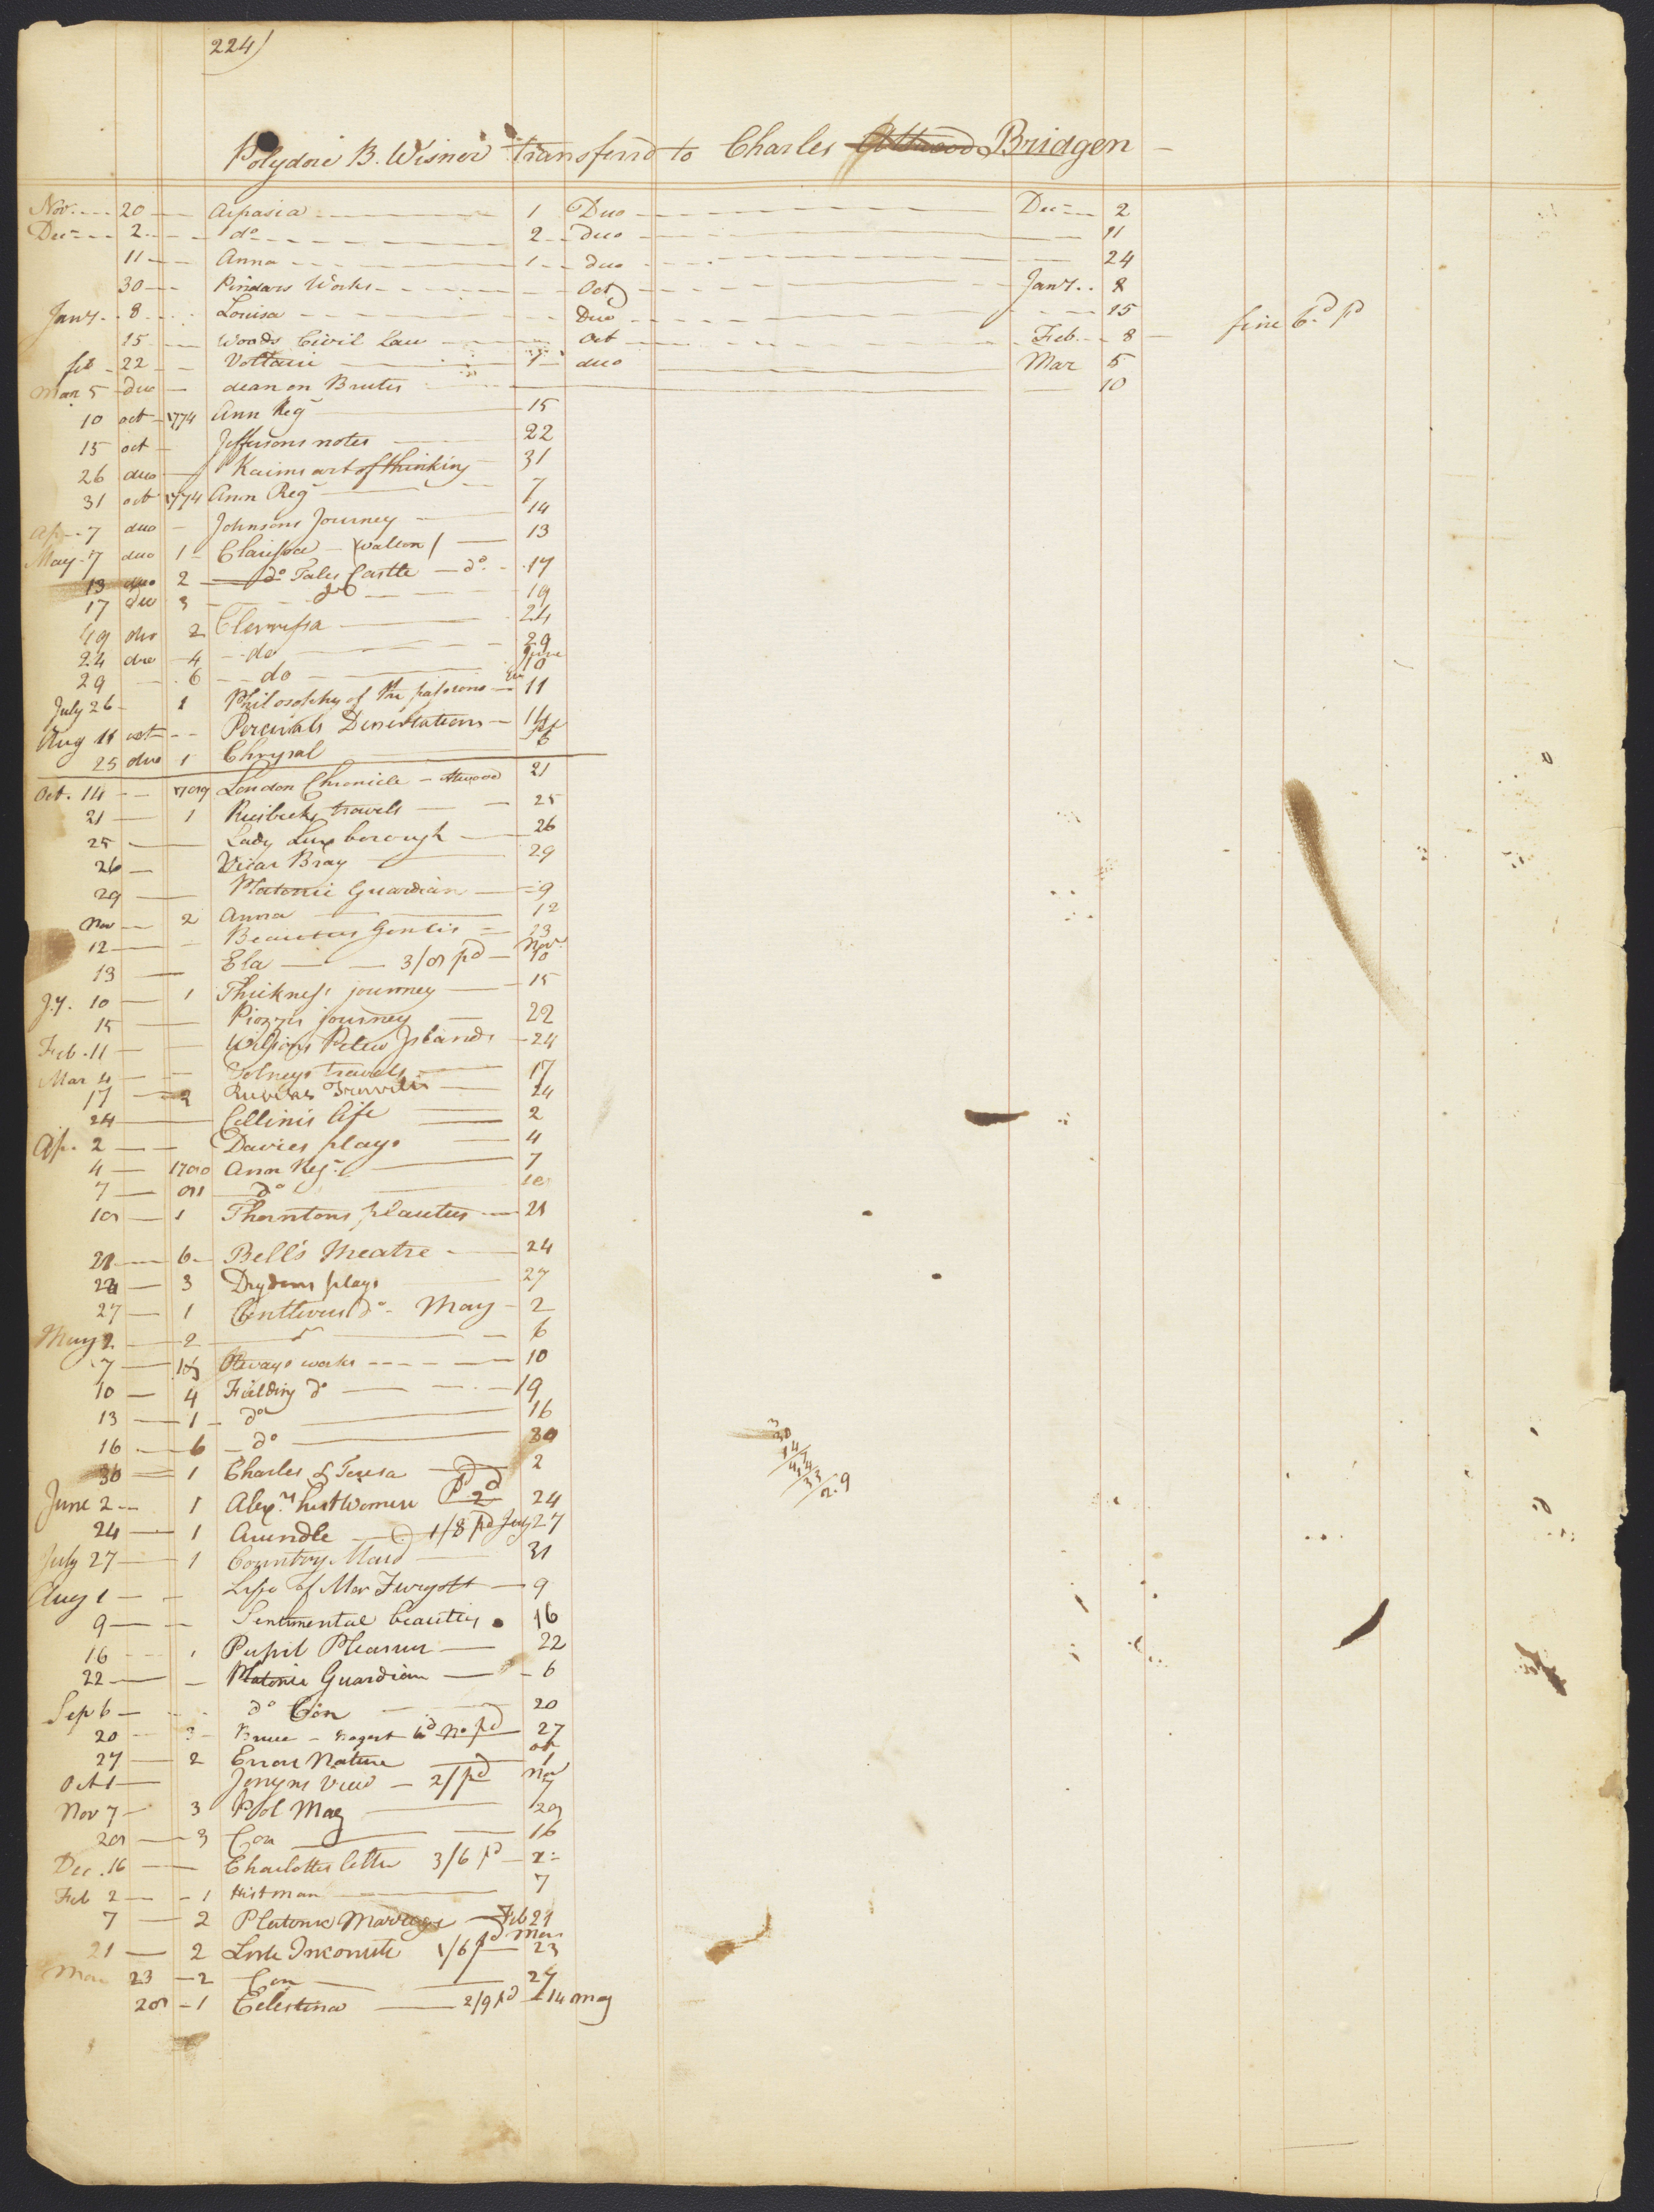 224)
Polydore B. Wisner transferrd to Charles Attwood Bridgen
Nov. 20 Aspasia 1 Duo Dec 2
Dec 2 do 2 duo 11
11 Anna 1 duo 24
30 Pindars Works Oct Jany 8
Jany 8 Louisa Duo 15
15 Woods Civil Law Oct Feb 8 fine 6d pd
feb 22 Voltaire 1 duo Mar 5
Mar 5 duo dean on Brutes 10
10 oct 1774 Ann Reg 15
15 oct Jeffersons notes 22
26 duo Kaims art of thinking 31
31 oct 1774 Ann Reg 7
Ap 7 duo Johnsons Journey 14
May 7 duo 1 Clarissa (Walton) 13
13 duo 2 do Tales Castle do 17
17 duo 3 do 19
19 duo 2 Clarrissa 24
24 duo 4 do 29
29 6 do June 10
July 26 1 Philosophy of the passions 11
Aug 11 oct Percivals Dissertations 14
25 duo 1 Chrysal 6
Oct. 14 London Chronicle Attwood 21
21 1 Riesbecks travels 25
25 Lady Luxborough 26
26 Vicar Bray 29
29 Platonic Guardian 9
Nov 2 Anna 12
12 Beauties Genlis 13
13 Ela 3/8 pd Nov 10
Jy. 10 1 Thickness journey 15
15 Piozzis journey 22
Feb. 11 Wilsons Pelew Islands 24
Mar 4 Volneys travels 17
17 2 Travels 24
24 Cellinis life 2
Ap. 2 Davies plays 4
4 1780 Ann Reg 7
7 81 do 10
10 1 Thorntons plautus 21
21 6 Bell's Theatre 24
24 3 Drydens plays 27
27 1 Centlivres do May 2
May 2 2 do 6
7 Otways works 10
10 4 Fielding do 19
13 1 do 16
16 6 do 30
30 1 Charles & Teresa 2
June 2 1 Alexrs hist Women Pd 2d 24
24 1 Arundle 1/8 pd July 27
July 27 1 Country Maid 31
Aug 1 Life of Mor Turgott 9
9 Sentimental beauties 16
16 1 Pupil Pleasure 22
22 Platonic Guardian 6
Sep 6 do Con 20
20 3 Bruce 6d No pd 27
27 2 Errors Nature oct 1
Oct 1 Jenyns View 2/ pd Nov 7
Nov 7 3 Pol Mag 28
28 3 Con 16
Dec. 16 Charlottes letters 3/6 pd 2
Feb 2 1 Histman 7
7 2 Platonic Marriage Feb 21
21 2 Link Inconnue 1/6 pd Mar 23
Mar 23 2 Con 27
28 1 Celestina 2/9 pd 14 may